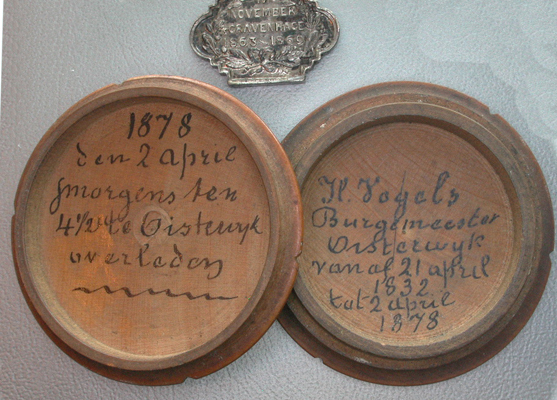 NOVEMBER
'S GRAVENHAGE
1863-1869
1878
den 2 april
smorgens ten
4½ te Oisterwyk
overleden
H. Vogels
Burgemeester
Oisterwyk
vanaf 21 april
1832
tot 2 april
1878